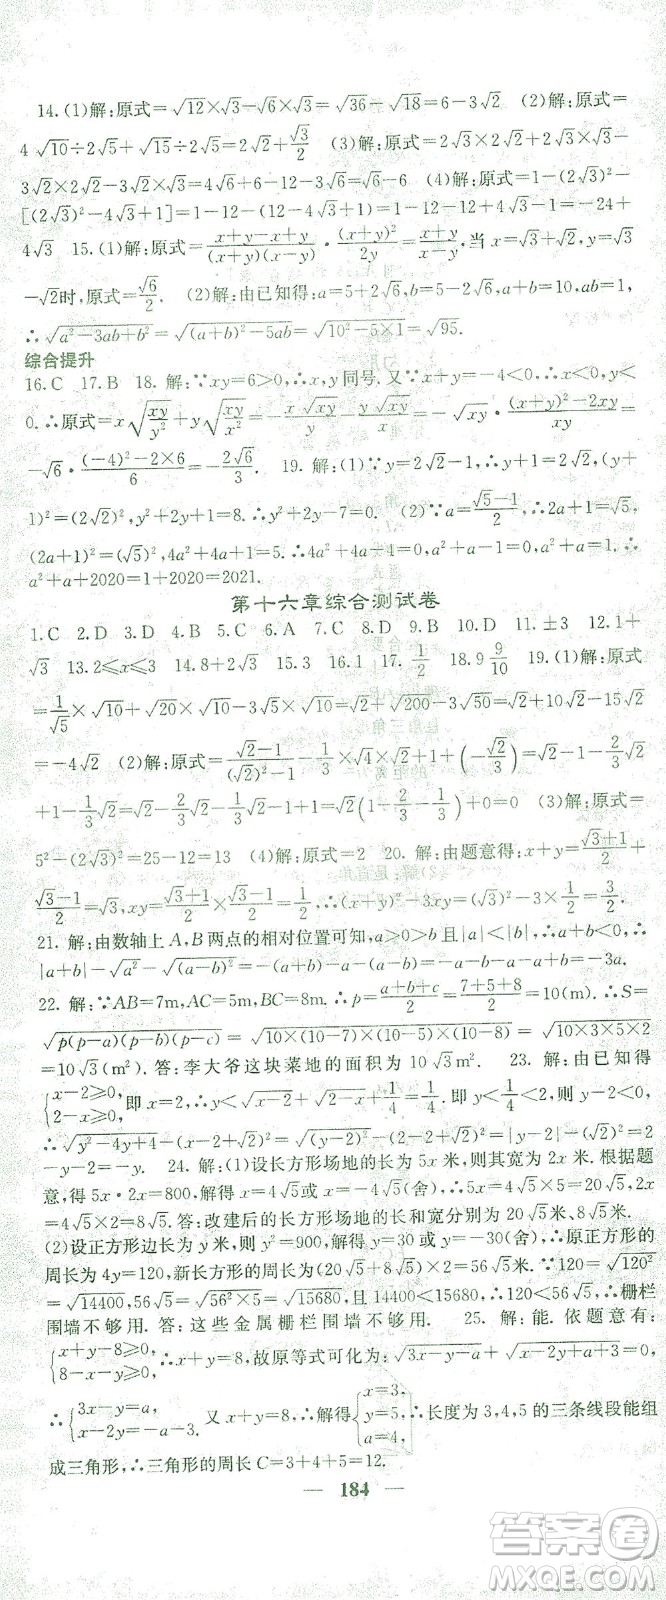 14.(1)解:原式=√12×√3-√6×√3=√36-√18=6-3√2 (2)解:原式=
4√10÷2√5+√15÷2√5=2√2+√3/2 (3)解:原式=2√2×2√3+2√2×3-
3√2×2√3-3√2×2√2=4√6+6√2-6√6-12
[(2√3)²-4√3+1]=1-12-(12-4√3+1)=1-12-12+4√3-1=-24+
4√3 15.(1)解:原式=(x+y-x+y)/((x+y)(x-y))·(x+y)²/2y=(x+y)/(x-y),当x=√3+√2,y=√3
-√2时,原式=√6/2. (2)解:由已知得:a=5+2√6,b=5-2√6,a+b=10,ab=1,
∴√(a²-3ab+b²)=√((a+b)²-5ab)=√(10²-5×1)=√95.
综合提升
16.C 17.B 18. 解:∵xy=6>0,∴x,y同号. 又∵x+y=-4<0,∴x<0,y<
0.∴原式=x√(xy/y²)+y√(xy/x²)=-x√xy/y-y√xy/x=-√xy·((x+y)²-2xy)/xy=
-√6·((-4)²-2×6)/6=-2√6/3. 19. 解:(1)∵y=2√2-1,∴y+1=2√2,(y+
1)²=(2√2)²,y²+2y+1=8.∴y²+2y-7=0. (2)∵a=(√5-1)/2,∴2a+1=√5,
(2a+1)²=(√5)²,4a²+4a+1=5,∴4a²+4a=4.∴a²+a=1.∴
a²+a+2020=1+2020=2021.
第十六章综合测试卷
1.C 2.D 3.D 4.B 5.C 6.A 7.C 8.D 9.C 10.D 11.±3 12.1+
√3 13.2≤x≤3 14.8+2√3 15. 16.1 17.1/2 18.9 9/10 19.(1)解:原式
=1/√5×√10+√20×√10-3√5×√10=√2+√200-3√50=√2+10√2-15√2
=-4√2 (2)解:原式=(√2-1)/((√2)²-1)-1/3×√4×√2+1+(-√2/3)=√2-1-2/3√2
+1-1/3√2=√2-2/3√2-1/3√2-1+1=√2(1-2/3-1/3)+0=0 (3)解:原式=
5²-(2√3)²=25-12=13 (4)解:原式=2 20. 解:由题意得:x+y=(√3+1)/2+
(√3-1)/2=√3,xy=(√3+1)/2×(√3-1)/2=1/2,∴(x+y)²-3xy=(√3)²-3×1/2=3/2.
21. 解:由数轴上A,B两点的相对位置可知,a>0>b且|a|<|b|,∴原式=
|a+b|-√a²-√(a-b)²=-(a+b)-a-(a-b)=-a-b-a-a+b=-3a.
22. 解:∵AB=7m,AC=5m,BC=8m.∴p=(a+b+c)/2=(7+5+8)/2=10.∴S=
√(p(p-a)(p-b)(p-c))=√(10×(10-7)×(10-5)×(10-8))=√(10×3×5×2)
=10√3(m²). 答:李大爷这块菜地的面积为10√3m². 23. 解:由已知得
{x-2≥0, 2-x≥0, 即x=2,∴y<√(x-2)+√(2-x)+1/4=1/4,即y<1/4<2,则y-2<0,
∴√(y²-4y+4)-(x-2+√2)²=√(y-2)²-(2-2+√2)²=|y-2|-(√2)²=2
-y-2=-y. 24. 解:(1)设长方形场地的长为5x米,则其宽为2x米.根据题
意,得5x·2x=800,解得x=4√5或x=-4√5(舍),∴5x=4√5×5=20√5,
2x=4√5×2=8√5. 答:改建后的长方形场地的长和宽分别为20√5米、8√5米.
(2)设正方形边长为y米,则y²=900,解得y=30或y=-30(舍),∴原正方形的
周长为4y=120,新长方形的周长为(20√5+8√5)×2=56√5,∵120=√120²
=√14400,56√5=√(56²×5)=√15680,且√14400<√15680,∴栅栏
围墙不够用. 答:这些金属栅栏围墙不够用. 25. 解:能. 依题意有:
{x+y-8≥0, 8-x-y≥0, ∴x+y=8,故原等式可化为√(3x-y-a)+√(x-2y+a+3)=0,
∴{3x-y=a, x-2y=-a-3. 又x+y=8,∴解得{x=3, y=5, a=4. ∴长度为3,4,5的三条线段能组
成三角形,∴三角形的周长C=3+4+5=12.
— 184 —
答案圈
MXQE.COM